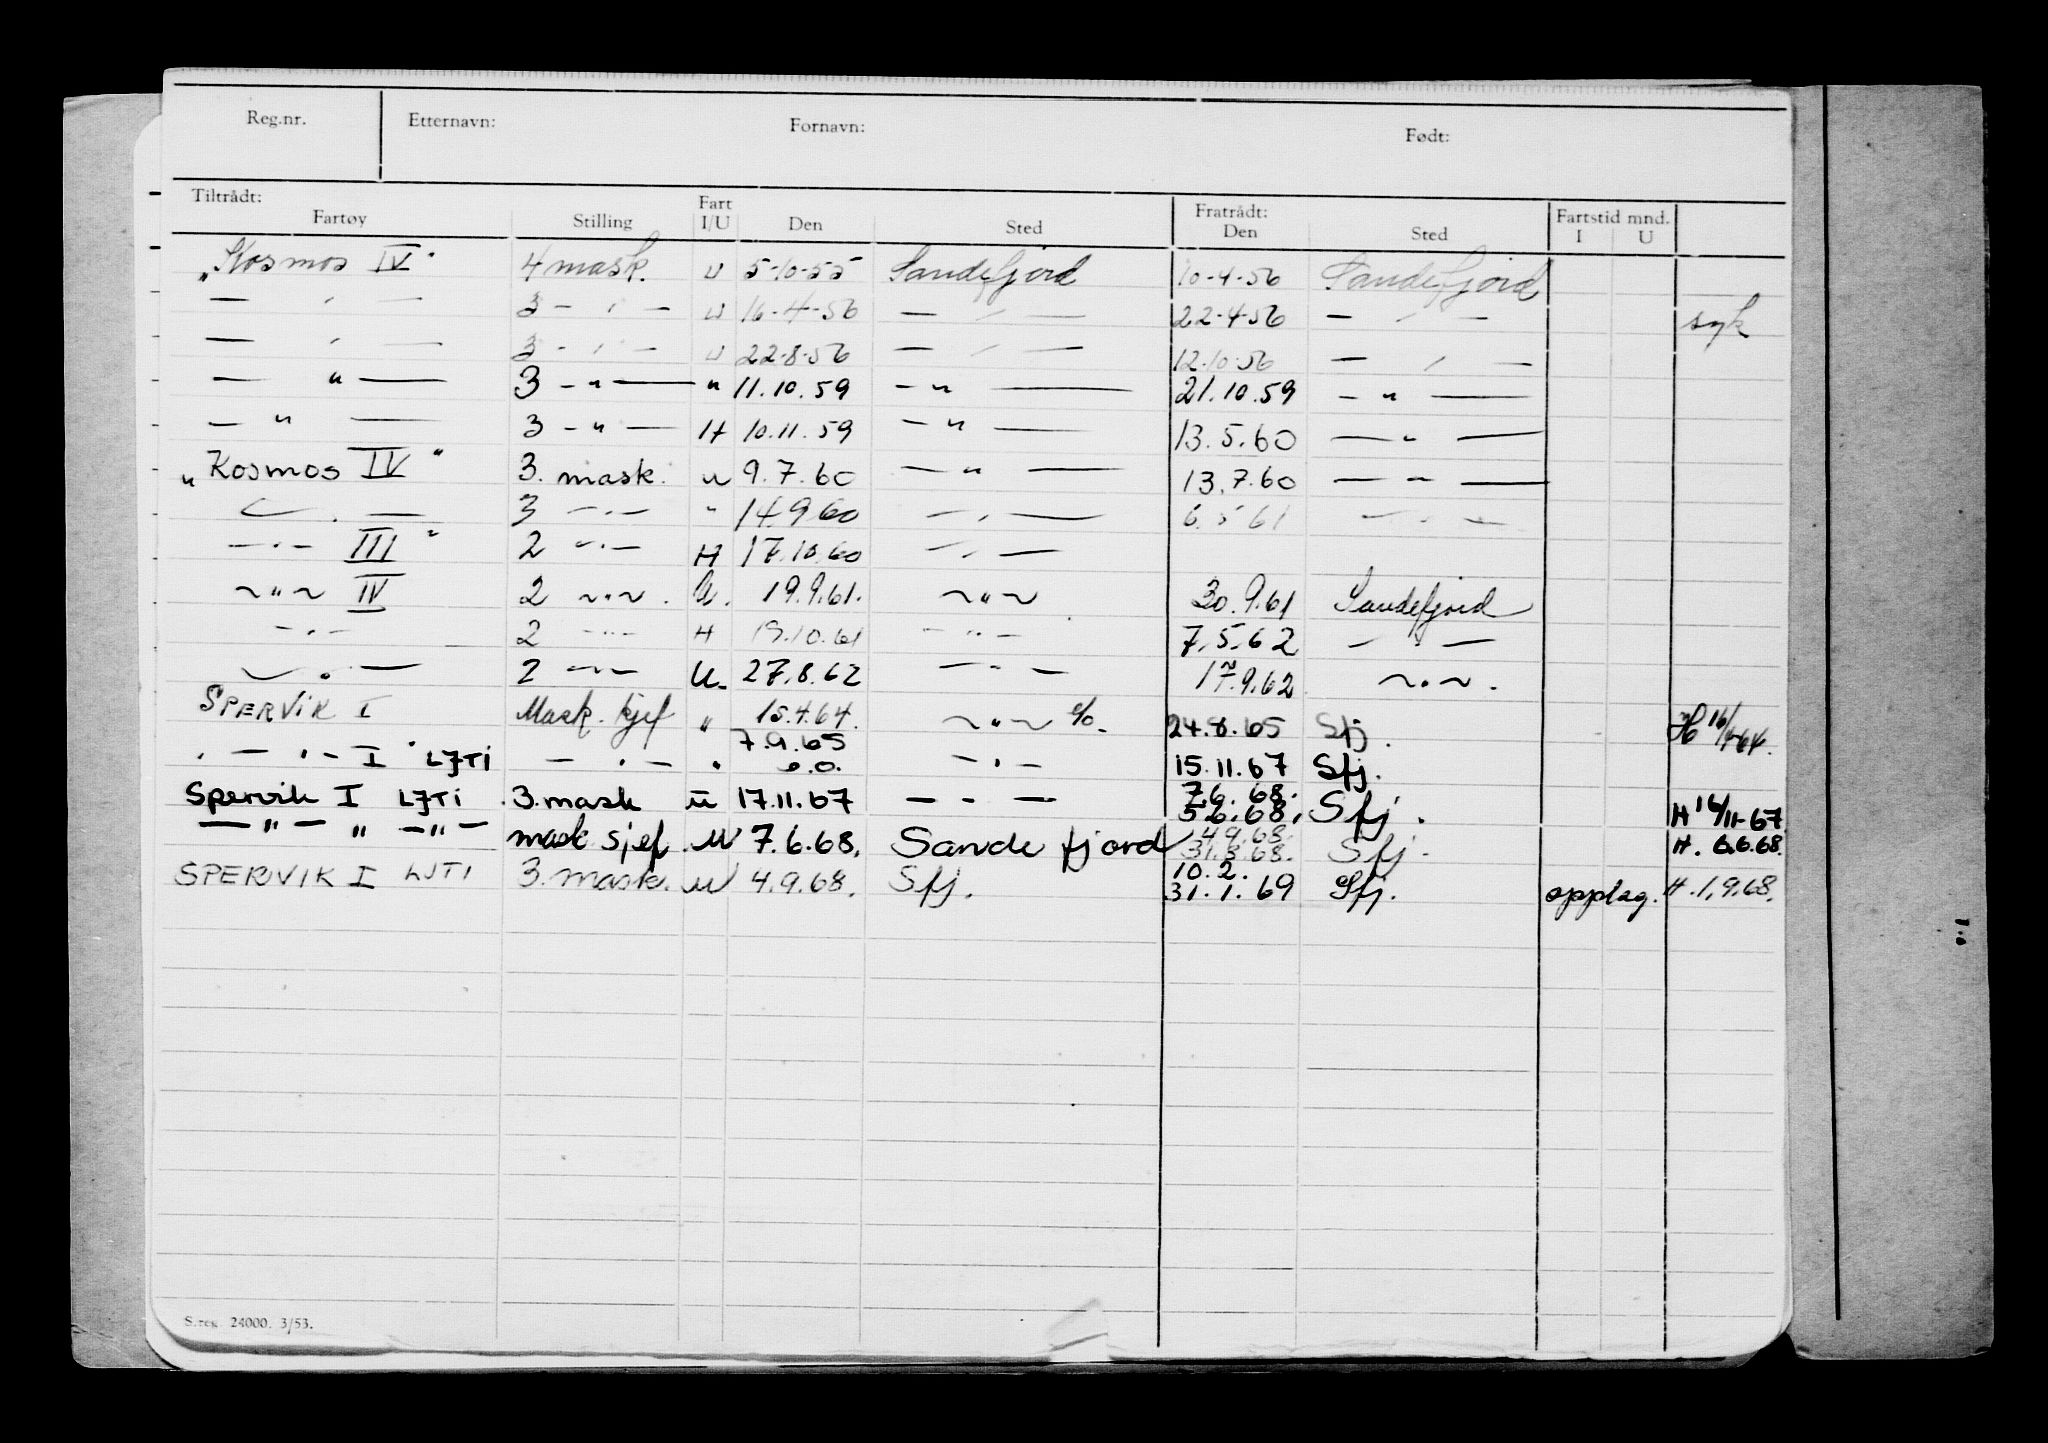 Reg.nr. Etternavn: Fornavn: Født:
Tiltrådt: Fart Fratrådt: Fartstid mnd.
Fartøy Stilling I/U Den Sted Den Sted I U
"Kosmos IV" 4 mask. U 5-10-55 Sandefjord 10-4-56 Sandefjord
— " — 3 — " — U 16-4-56 — " — 22-4-56 — " — syk
— " — 3 — " — U 22-8-56 — " — 12-10-56 — " —
— " — 3 — " — " 11.10.59 — " — 21.10.59 — " —
— " — 3 — " — H 10.11.59 — " — 13.5.60 — " —
"Kosmos IV" 3. mask. u 9.7.60 — " — 13.7.60 — " —
— " — 3 — " — " 14.9.60 — " — 6.5.61 — " —
— " — III " 2 — " — H 17.10.60 — " —
~ " ~ IV 2 ~ " ~ . U. 19.9.61. ~ " ~ 30.9.61 Sandefjord
— " — 2 — " — H 19.10.61 — " — 7.5.62 — " —
— " — 2 — " — U. 27.8.62 — " — 17.9.62 ~ " ~ .
SPERVIK I Mask. kjef " 15.4.64. ~ " ~ 24.8.65 Sfj. H 16/4-64.
7.9.65
" — " — I " LJTI — " — " — " — 15.11.67 Sfj.
7.6.68.
Spervik I LJTI 3. mask U 17.11.67 — " — 5.6.68. Sfj. H 16/11-67
4.9.68.
— " — " — " — mask sjef U 7.6.68. Sandefjord 31.8.68. Sfj. H. 6.6.68.
10.2.
SPERVIK I LJTI 3. mask. U 4.9.68. Sfj. 31.1.69 Sfj. opplag. H. 1.9.68.
S.reg. 24000. 3/53.